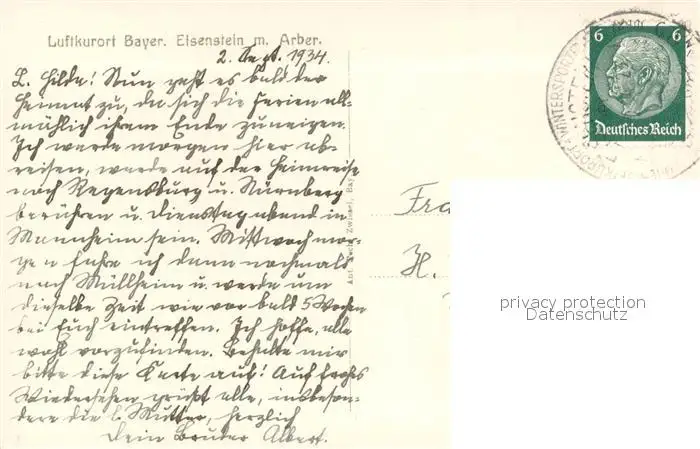 Luftkurort Bayer. Eisenstein m. Arber.
2. Sept. 1934.
L. Hilda! Nun geht es bald der
Heimat zu, da sich die Ferien all-
mählich ihrem Ende zuneigen.
Ich werde morgen hier ab-
reisen, werde auf der Heimreise
noch Regensburg u. Nürnberg
berühren u. Dienstag abend in
Mannheim sein. Mittwoch mor-
gen fahre ich dann nochmals
nach Müllheim u. werde um
dieselbe Zeit wie vor bald 5 Wochen
bei Euch eintreffen. Ich hoffe, alle
wohl vorzufinden. Behalte mir
bitte diese Karte auf! Auf frohes
Wiedersehen grüßt alle, insbeson-
dere die l. Mutter, herzlich
Dein Bruder Albert.
Zwiesel, Bay
6 6
Deutsches Reich
WINTERSPORTPL
Fra
H.
privacy protection
Datenschutz